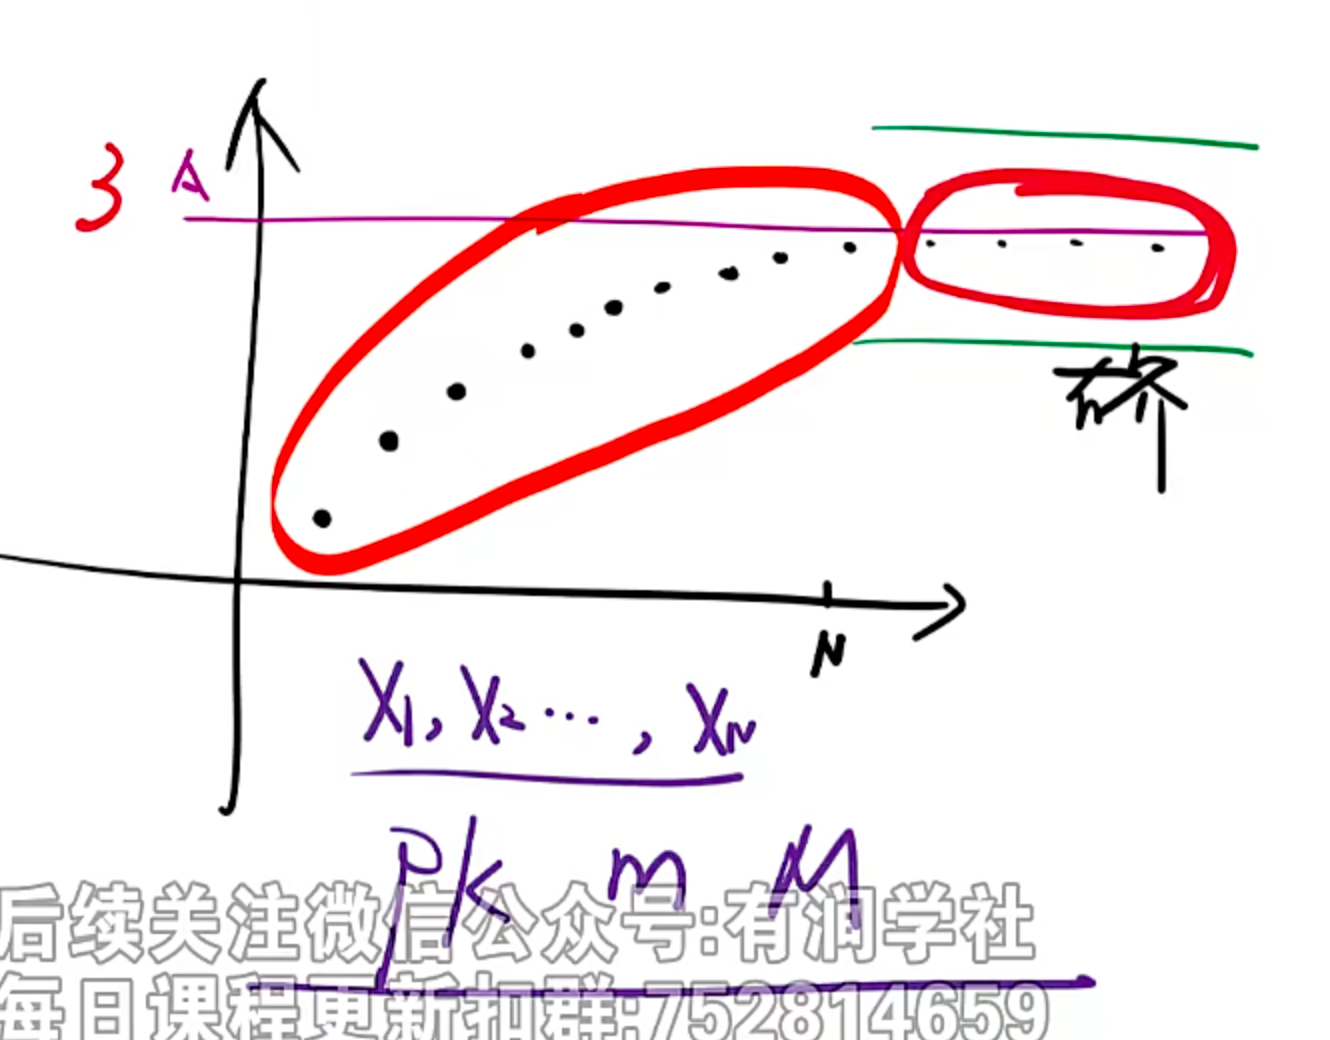 3 A
N
X₁, X₂ ..., X_N
PK m M
后续关注微信公众号:有润学社
每日课程更新扣群:752814659